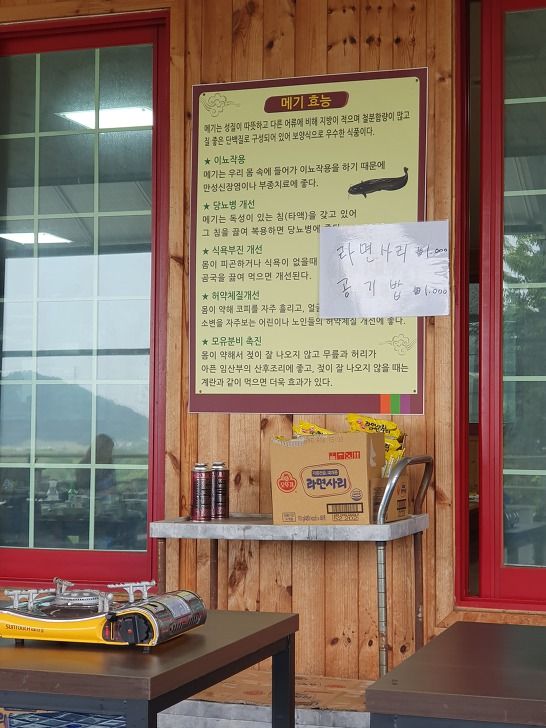 메기 효능
메기는 성질이 따뜻하고 다른 어류에 비해 지방이 적으며 철분함량이 많고
질 좋은 단백질로 구성되어 있어 보양식으로 우수한 식품이다.
★ 이뇨작용
메기는 우리 몸 속에 들어가 이뇨작용을 하기 때문에
만성신장염이나 부종치료에 좋다.
★ 당뇨병 개선
메기는 독성이 있는 침(타액)을 갖고 있어
그 침을 끓여 복용하면 당뇨병에
★ 식욕부진 개선
몸이 피곤하거나 식욕이 없을때
곰국을 끓여 먹으면 개선된다.
★ 허약체질개선
몸이 약해 코피를 자주 흘리고,
소변을 자주보는 어린이나 노인들의 허약체질 개선에 좋다.
★ 모유분비 촉진
몸이 약해서 젖이 잘 나오지 않고 무릎과 허리가
아픈 임산부의 산후조리에 좋고, 젖이 잘 나오지 않을 때는
계란과 같이 먹으면 더욱 효과가 있다.
라면사리 ₩1,000
공기밥 ₩1,000
오뚜기
라면사리
SUNTOUCH